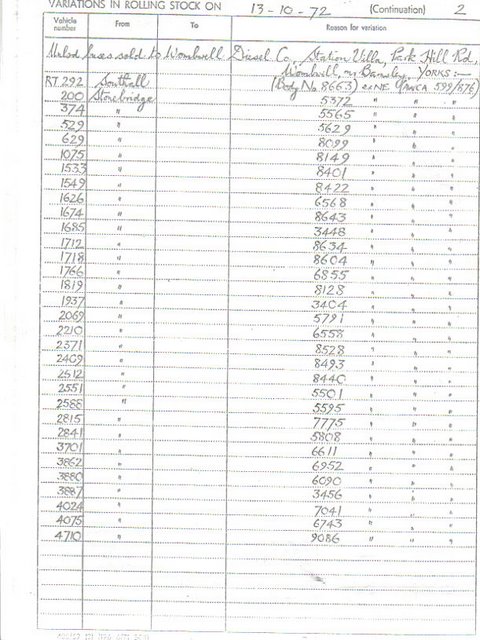 VARIATIONS IN ROLLING STOCK ON 13-10-72 (Continuation) 2
Vehicle number From To Reason for variation
Unlsd buses sold to Wombwell Diesel Co, Station Villa, Park Hill Rd,
Wombwell, nr Barnsley, YORKS:—
RT 292 Southall (Body No. 8663) 599/876)
200 Stonebridge 5372 " " "
374 " 5565 " " "
529 " 5629 " " "
629 " 8099 " " "
1075 " 8149 " " "
1533 " 8401 " " "
1549 " 8422 " " "
1626 " 6568 " " "
1674 " 8643 " " "
1685 " 3448 " " "
1712 " 8634 " " "
1718 " 8604 " " "
1766 " 6855 " " "
1819 " 8128 " " "
1937 " 3404 " " "
2069 " 5791 " " "
2210 " 6558 " " "
2371 " 8528 " " "
2409 " 8493 " " "
2512 " 8440 " " "
2551 " 5501 " " "
2588 " 5595 " " "
2815 " 7775 " " "
2841 " 5808 " " "
3701 " 6611 " " "
3862 " 6952 " " "
3880 " 6090 " " "
3887 " 3456 " " "
4024 " 7041 " " "
4075 " 6743 " " "
4710 " 9086 " " "